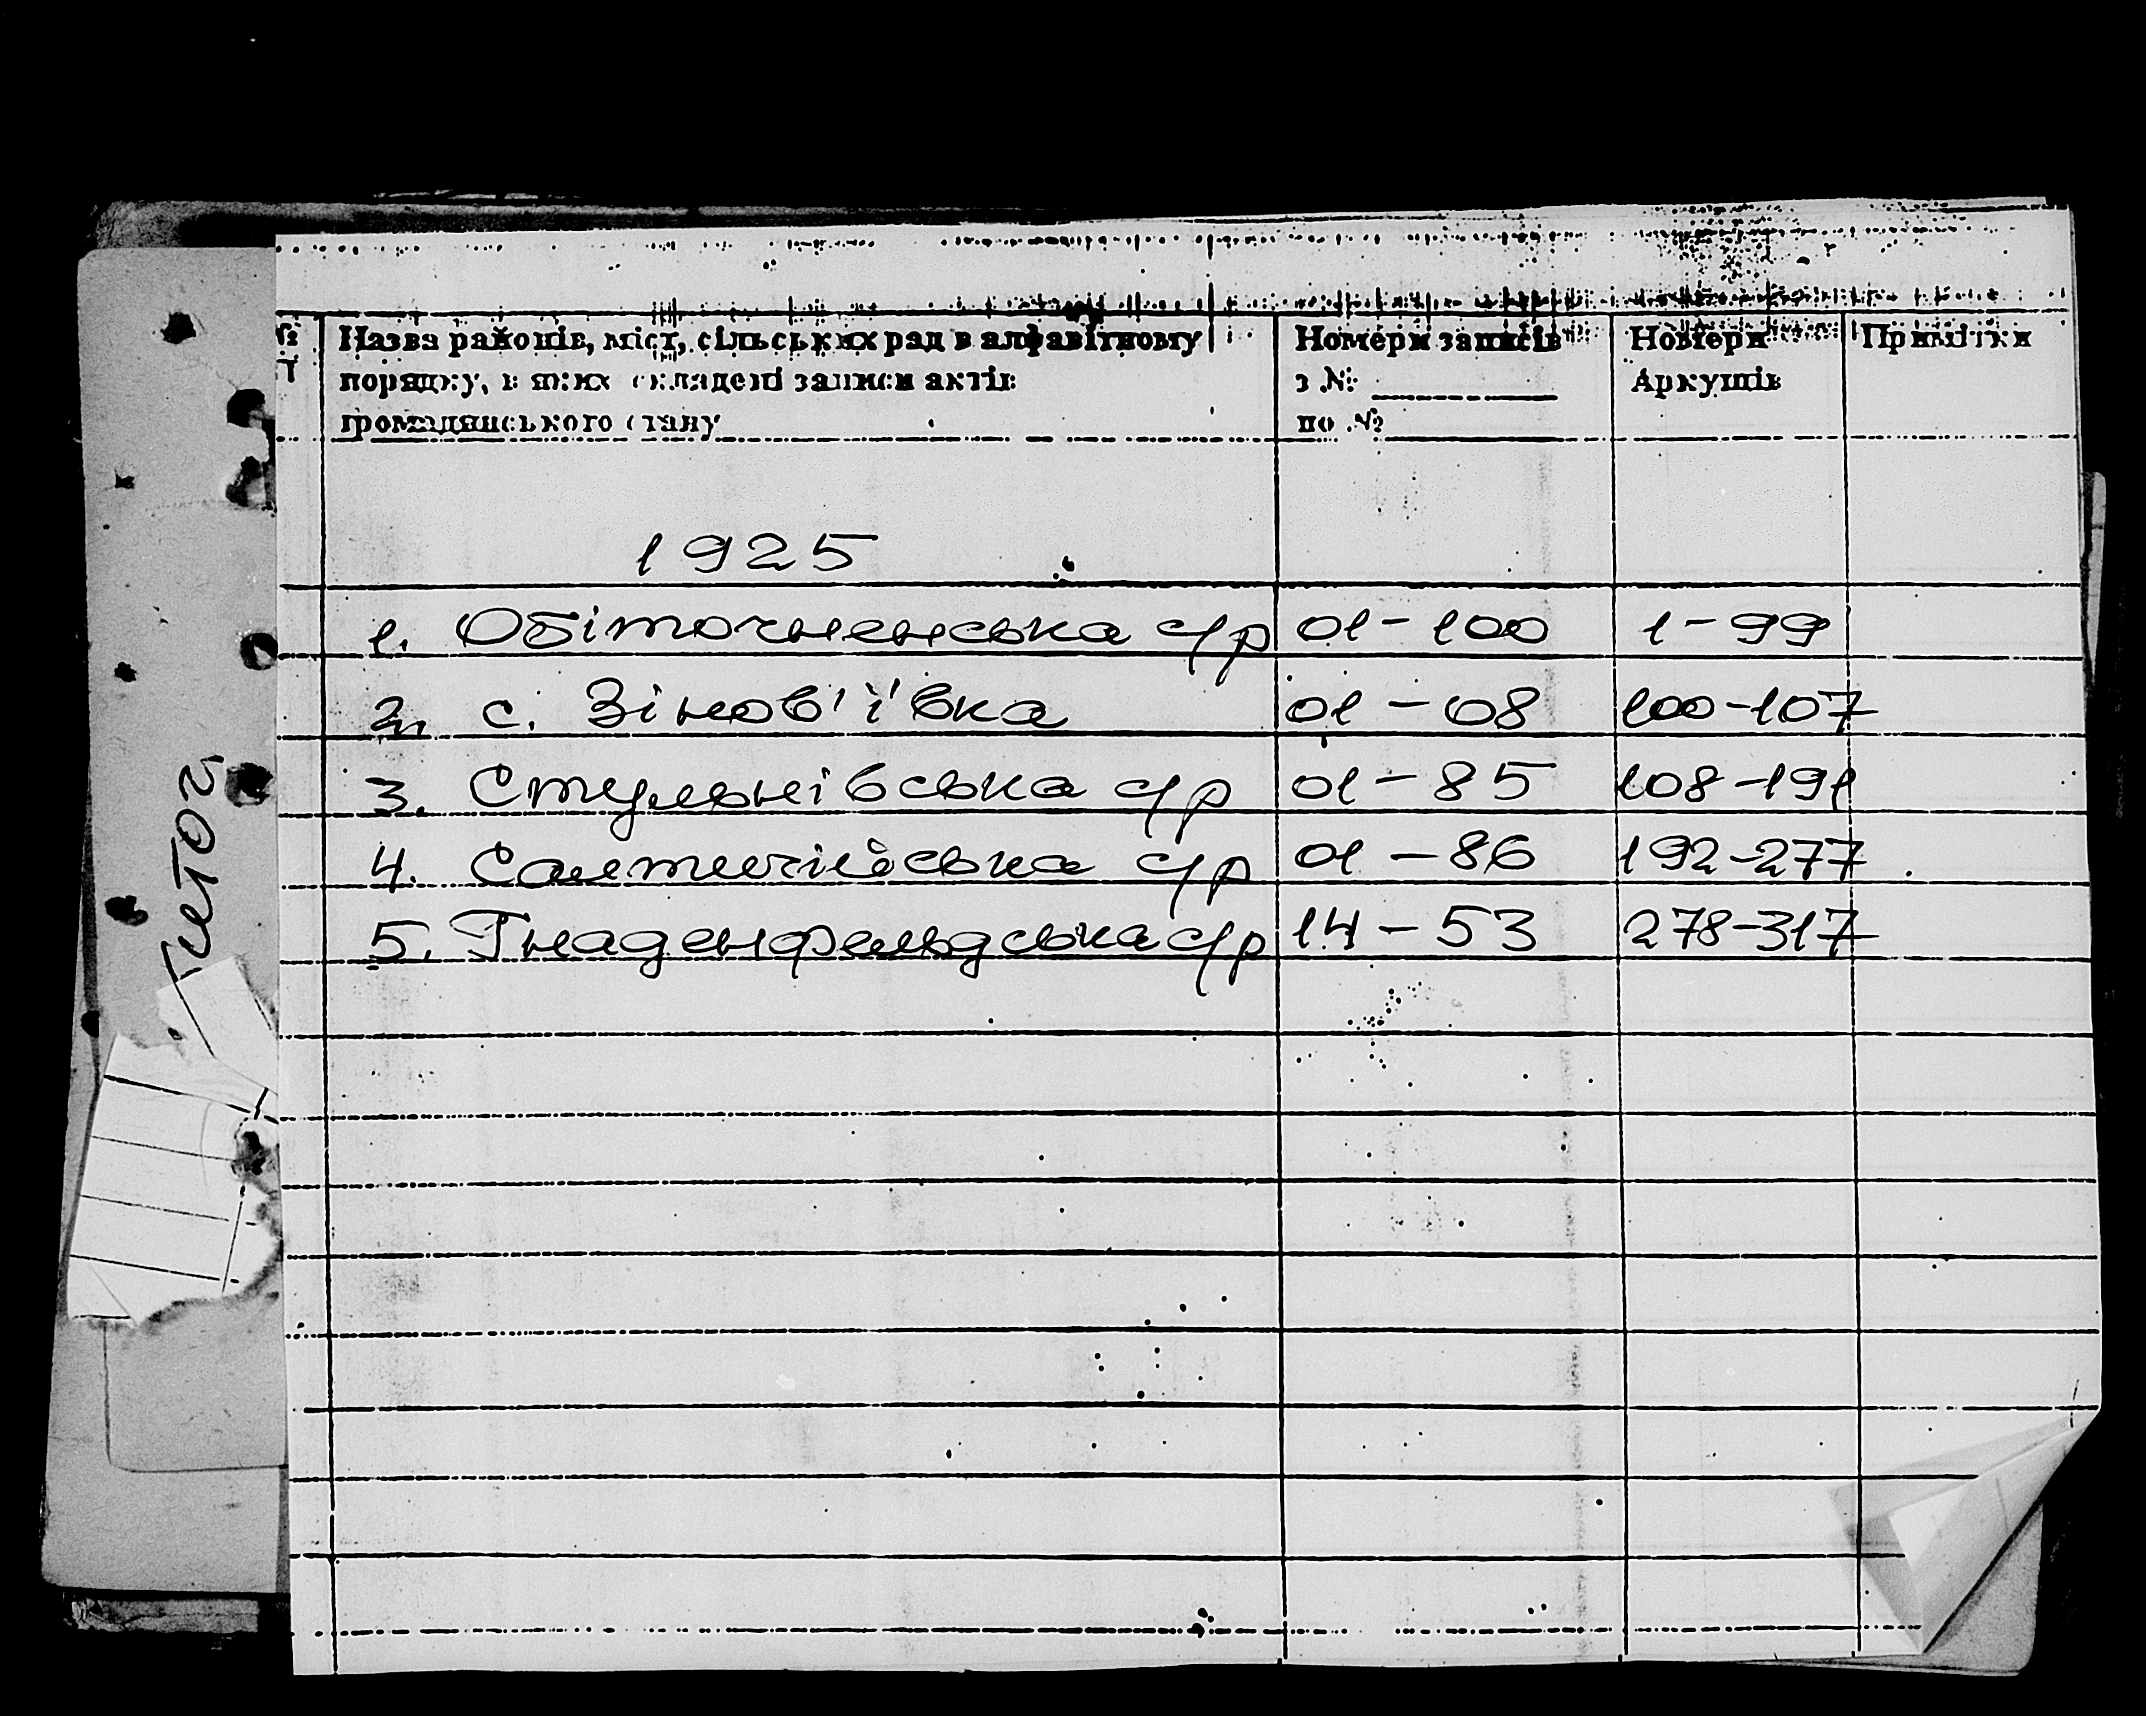 № Назва районів, міст, сільських рад в алфавітному Номери записів Номери Примітки
порядку, в яких складені записи актів з № Аркушів
громадянського стану по №
1925
1. Обіточненська с/р 01-100 1-99
2. с. Зінов'ївка 01-08 100-107
3. Стульнівська с/р 01-85 108-191
4. Салтичійська с/р 01-86 192-277
5. Гнаденфельдська с/р 14-53 278-317